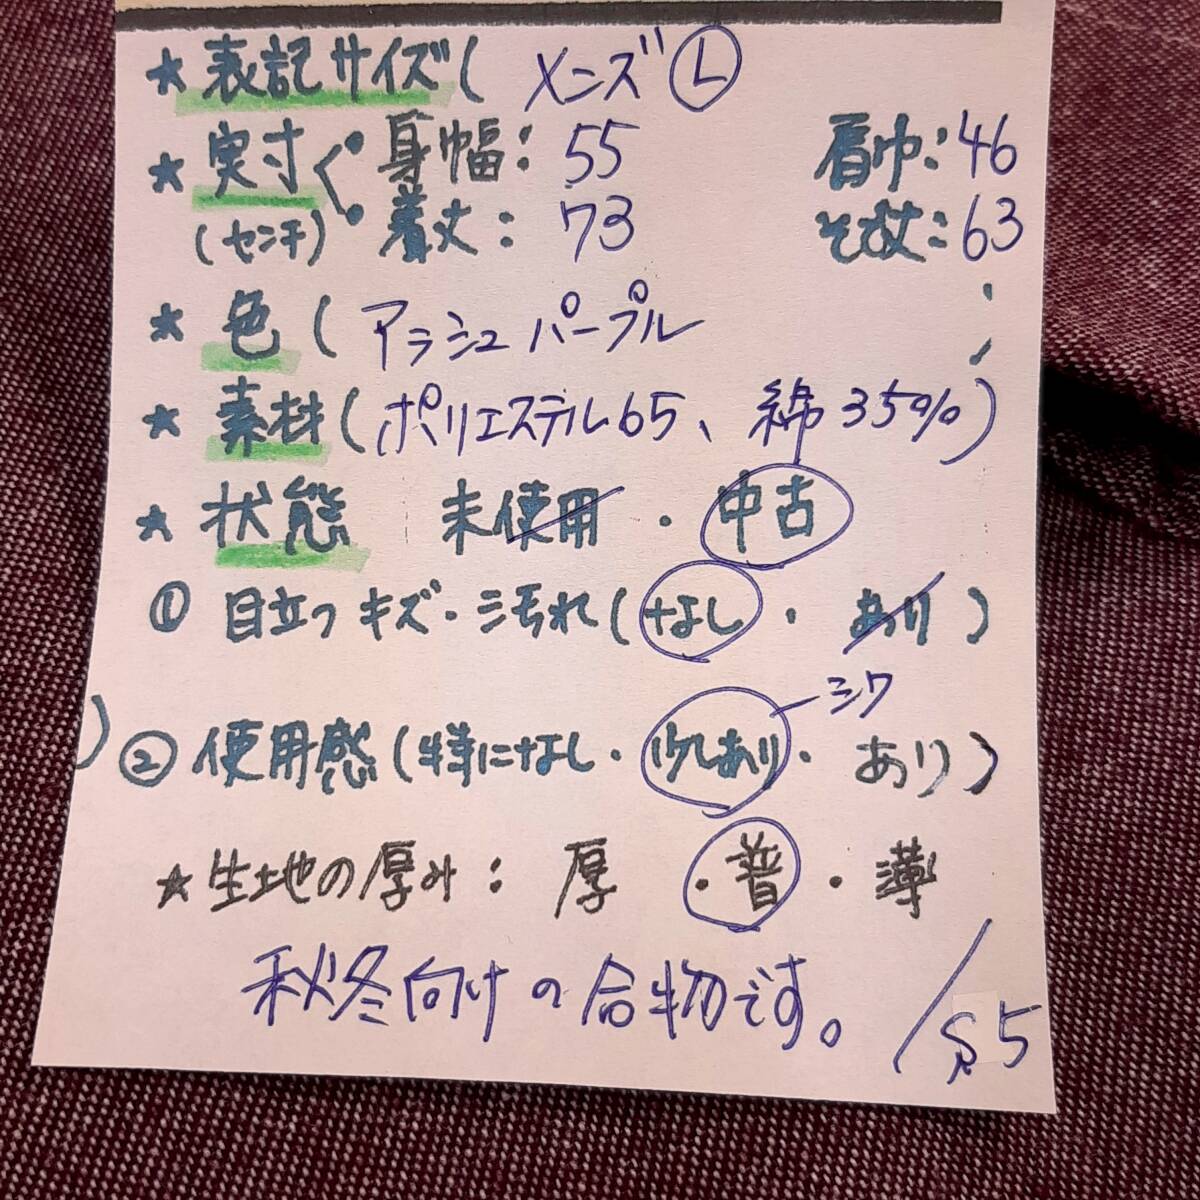 ★表記サイズ( メンズ Ⓛ
★実寸く・身幅：55 肩巾：46
(センチ)・着丈：73 そで丈：63
★色(アラシュパープル )
★素材(ポリエステル65、綿35%)
★状態 未使用・中古
①目立つキズ・汚れ(なし・あり)
シワ
)②使用感(特になし・少しあり・あり)
★生地の厚み：厚・普・薄
秋冬向けの合物です。